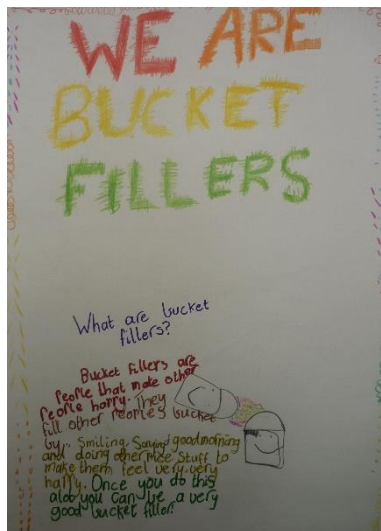 WE ARE
BUCKET
FILLERS
What are bucket
fillers?
Bucket fillers are
people that make other
people happy. They
fill other people's bucket
by.. Smiling, Saying goodmorning
and doing other nice stuff to
make them feel very very
happy. Once you do this
alot you can be a very
good bucket filler.